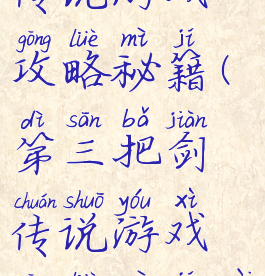 传说游戏
gōng lüè mì jí
攻略秘籍(
dì sān bǎ jiàn
第三把剑
chuán shuō yóu xì
传说游戏